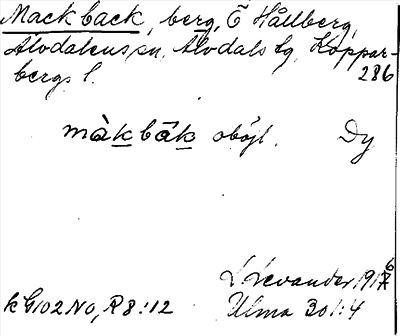 Mackback, berg, Ö Hållberg,
Älvdalens sn. Älvdals tg, Koppar-
bergs l. 286
màkbāk oböjl. Dy
L Levander 1916
kG102NO, R8:12 Ulma 301:4